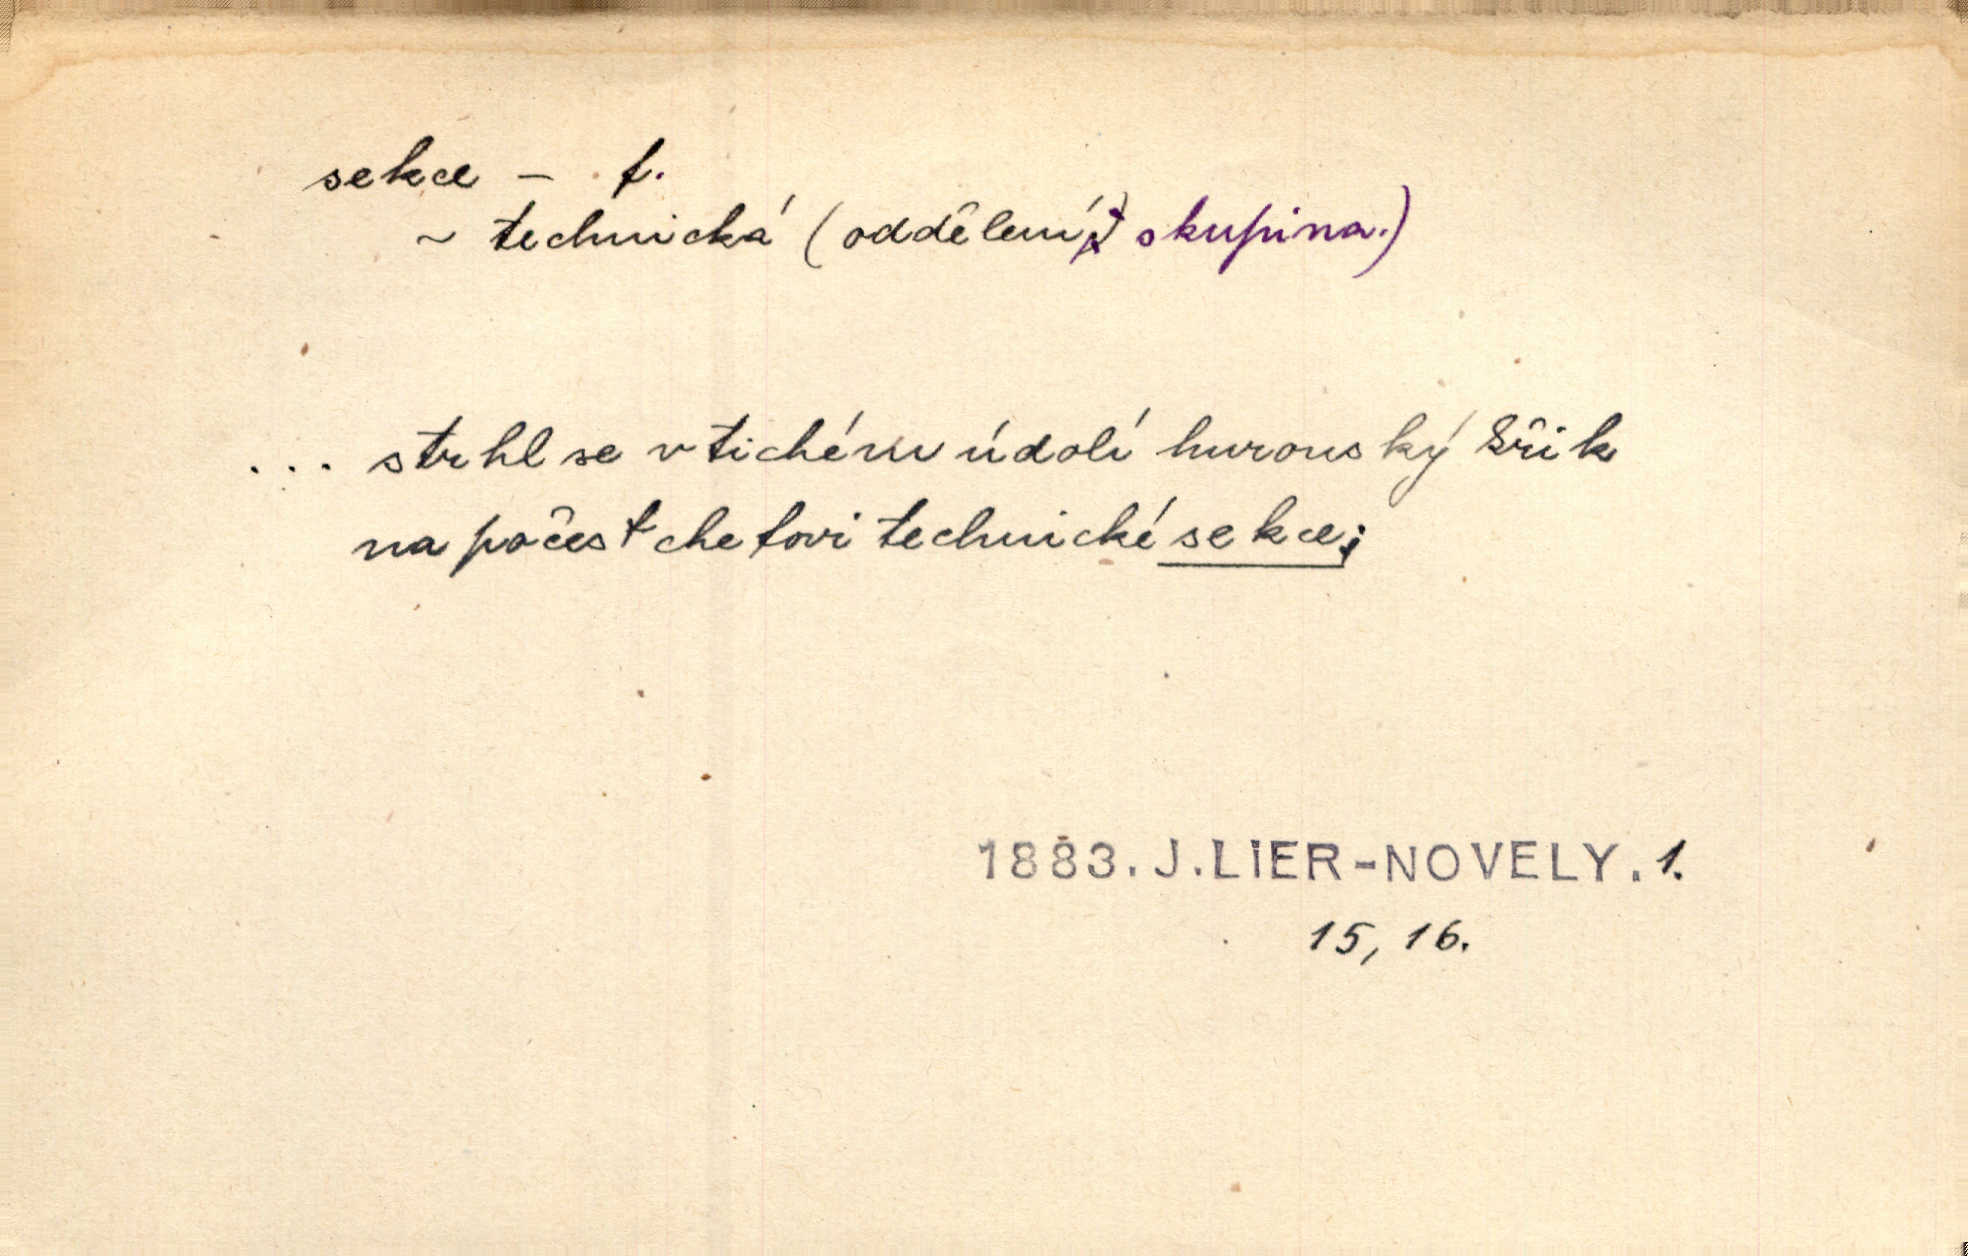 sekce – f.
~ technická (oddělení, skupina.)
... strhl se v tichém údolí huronský křik
na počest chefovi technické sekce;
1883. J. LIER - NOVELY. 1.
15, 16.